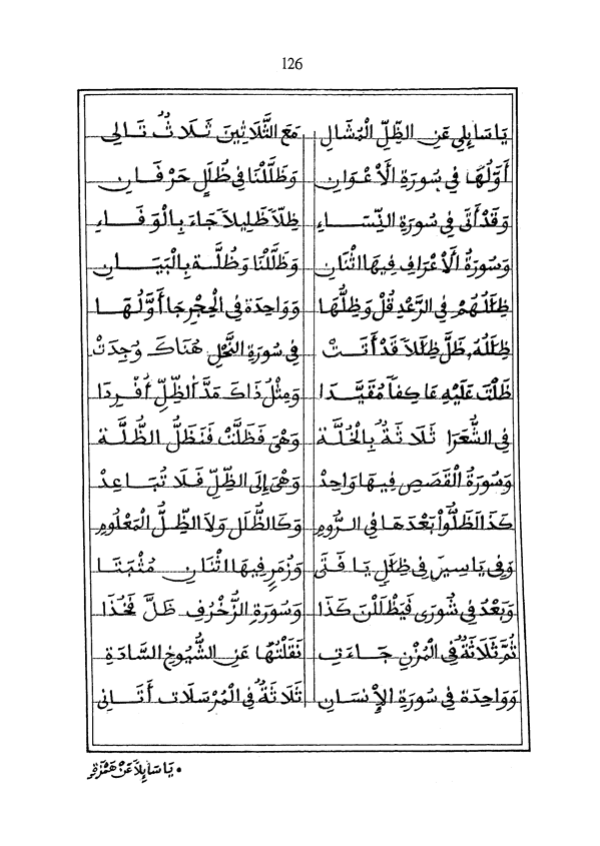 126
يَاسَابِلِي عَنِ الظِّلِّ الْمُشَالِ مَعَ الثَّلَاثِينَ ثَلَاثٌ تَالِي
أَوَّلُهَا فِي سُورَةِ الْأَعْوَانِ وَظَلَّلْنَا فِي ظُلَلٍ حَرْفَانِ
وَقَدْ أَتَى فِي سُورَةِ النِّسَاءِ ظِلًّا ظَلِيلًا جَاءَ بِالْوَفَاءِ
وَسُورَةُ الْأَعْرَافِ فِيهَا اثْنَانِ وَظَلَّلْنَا وَظُلَّة بِالْبَيَانِ
ظِلَٰلُهُمْ فِي الرَّعْدِ قُلْ وَظِلُّهَا وَوَاحِدَة فِي الْحِجْرِ جَا أَوَّلُهَا
ظِلَٰلُهُ ظَلَّ ظِلَٰلًا قَدْ أَتَتْ فِي سُورَةِ النَّحْلِ هُنَاكَ وُجِدَتْ
ظَلْتَ عَلَيْهِ عَاكِفًا مُقَيَّدَا وَمِثْلُ ذَاكَ مَدَّ الظِّلِّ أُفْرِدَا
فِي الشُّعَرَا ثَلَاثَةٌ بِالْخُلَّة وَهْيَ فَظَلَّتْ فَنَظَلُّ الظُّلَّة
وَسُورَةُ الْقَصَصِ فِيهَا وَاحِدْ وَهْيَ إِلَى الظِّلِّ فَلَا تُبَاعِدْ
كَذَا لَظَلُّوا۟ بَعْدَهَا فِي الرُّومِ وَكَالظُّلَلِ وَلَا الظِّلُّ الْمَعْلُومِ
وَفِي يَاسِينَ فِي ظِلَٰلٍ يَا فَتَى وَزُمَرٍ فِيهَا اثْنَانِ مُثْبَتَا
وَبَعْدُ فِي شُورَى فَيَظْلَلْنَ كَذَا وَسُورَةِ الزُّخْرُفِ ظَلَّ فَخُذَا
ثُمَّ ثَلَاثَةٌ فِي الْمُزْنِ جَاءَتِ نَقَلْتُهَا عَنِ الشُّيُوخِ السَّادَةِ
وَوَاحِدَة فِي سُورَةِ الْإِنْسَانِ ثَلَاثَةٌ فِي الْمُرْسَلَاتِ أَتَانِي
• يَاسَابِلًا عَنْ هَمْزَةٍ